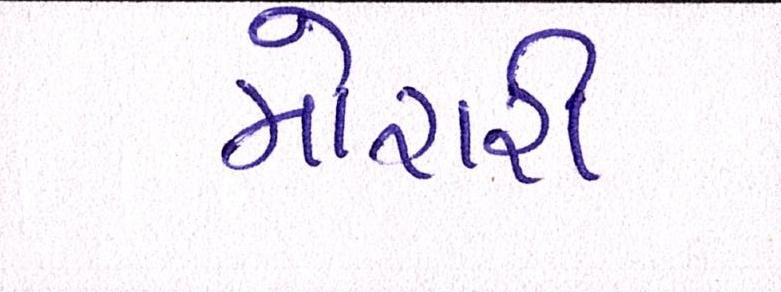 મોરારી